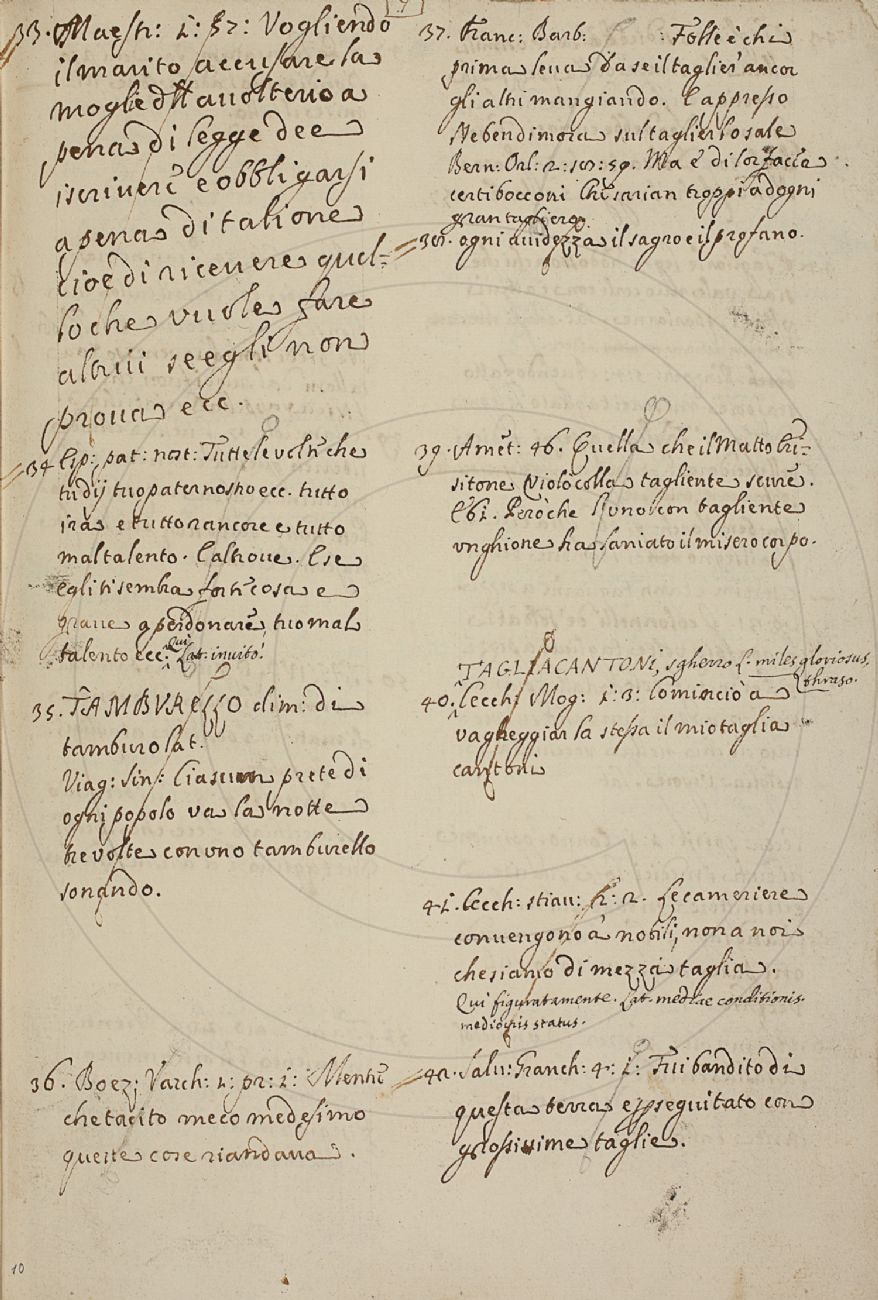 33. Maestr: 1: 57: Vogliendo
il marito accusare la
moglie d'auolterio a
pena di legge dee
iscriuere e obbligarsi
a pena di talione
cioe di riceuere quel-
lo che vuole fare
altrui se egli non
proua ecc.
34 Esp: pat: nost: Tutte le volte che
tu dij tuo paternostro ecc. tutto
ira e tutto rancore e tutto
maltalento. E altroue. E se
egli ti sembra forte cosa e
graue a perdonare, tuo mal
talento ecc. Qui Lat. inuito!
35. TAMBVRELLO dim: di
tamburo lat.
Viag: Sin: Ciascun prete di
ogni popolo va la notte
tre volte con uno tamburello
sonando.
36. Boez: Varch: 1: pr: 1: Mentre
che tacito meco medesimo
queste cose riandaua.
37. Franc: Barb: : Folle è chi
prima leua da se il taglier ancor
gli altri mangiando. E appresso
Ne ben dimora sul taglier lo sale
Bern: Orl: 2: 59. Ma e' di lor faceva
certi bocconi Che sarian troppi ad ogni
gran tagliero.
38. ogni auidezza il sagro e il profano.
39. Amet: 46. Quella che il matto Eri-
sitone violò colla tagliente scure.
E 61. Peroche l'uno con tagliente
vnghione ha laniato il misero corpo.
TAGLIACANTONI, sgherro L. miles gloriosus,
thraso.
40. Cecch: Mog: 1: 3: Cominciò a
vagheggiar la stessa il mio taglia
cantoni
41. Cecch: stiau: 2. Le cameriere
conuengono a' nobili, non a noi
che siamo di mezza taglia.
Qui figuratamente. Lat. mediae conditionis.
mediocris status.
42. Salu: Granch: 4: 1: Fui bandito di
questa terra e perseguitato con
grossissime taglie.
10